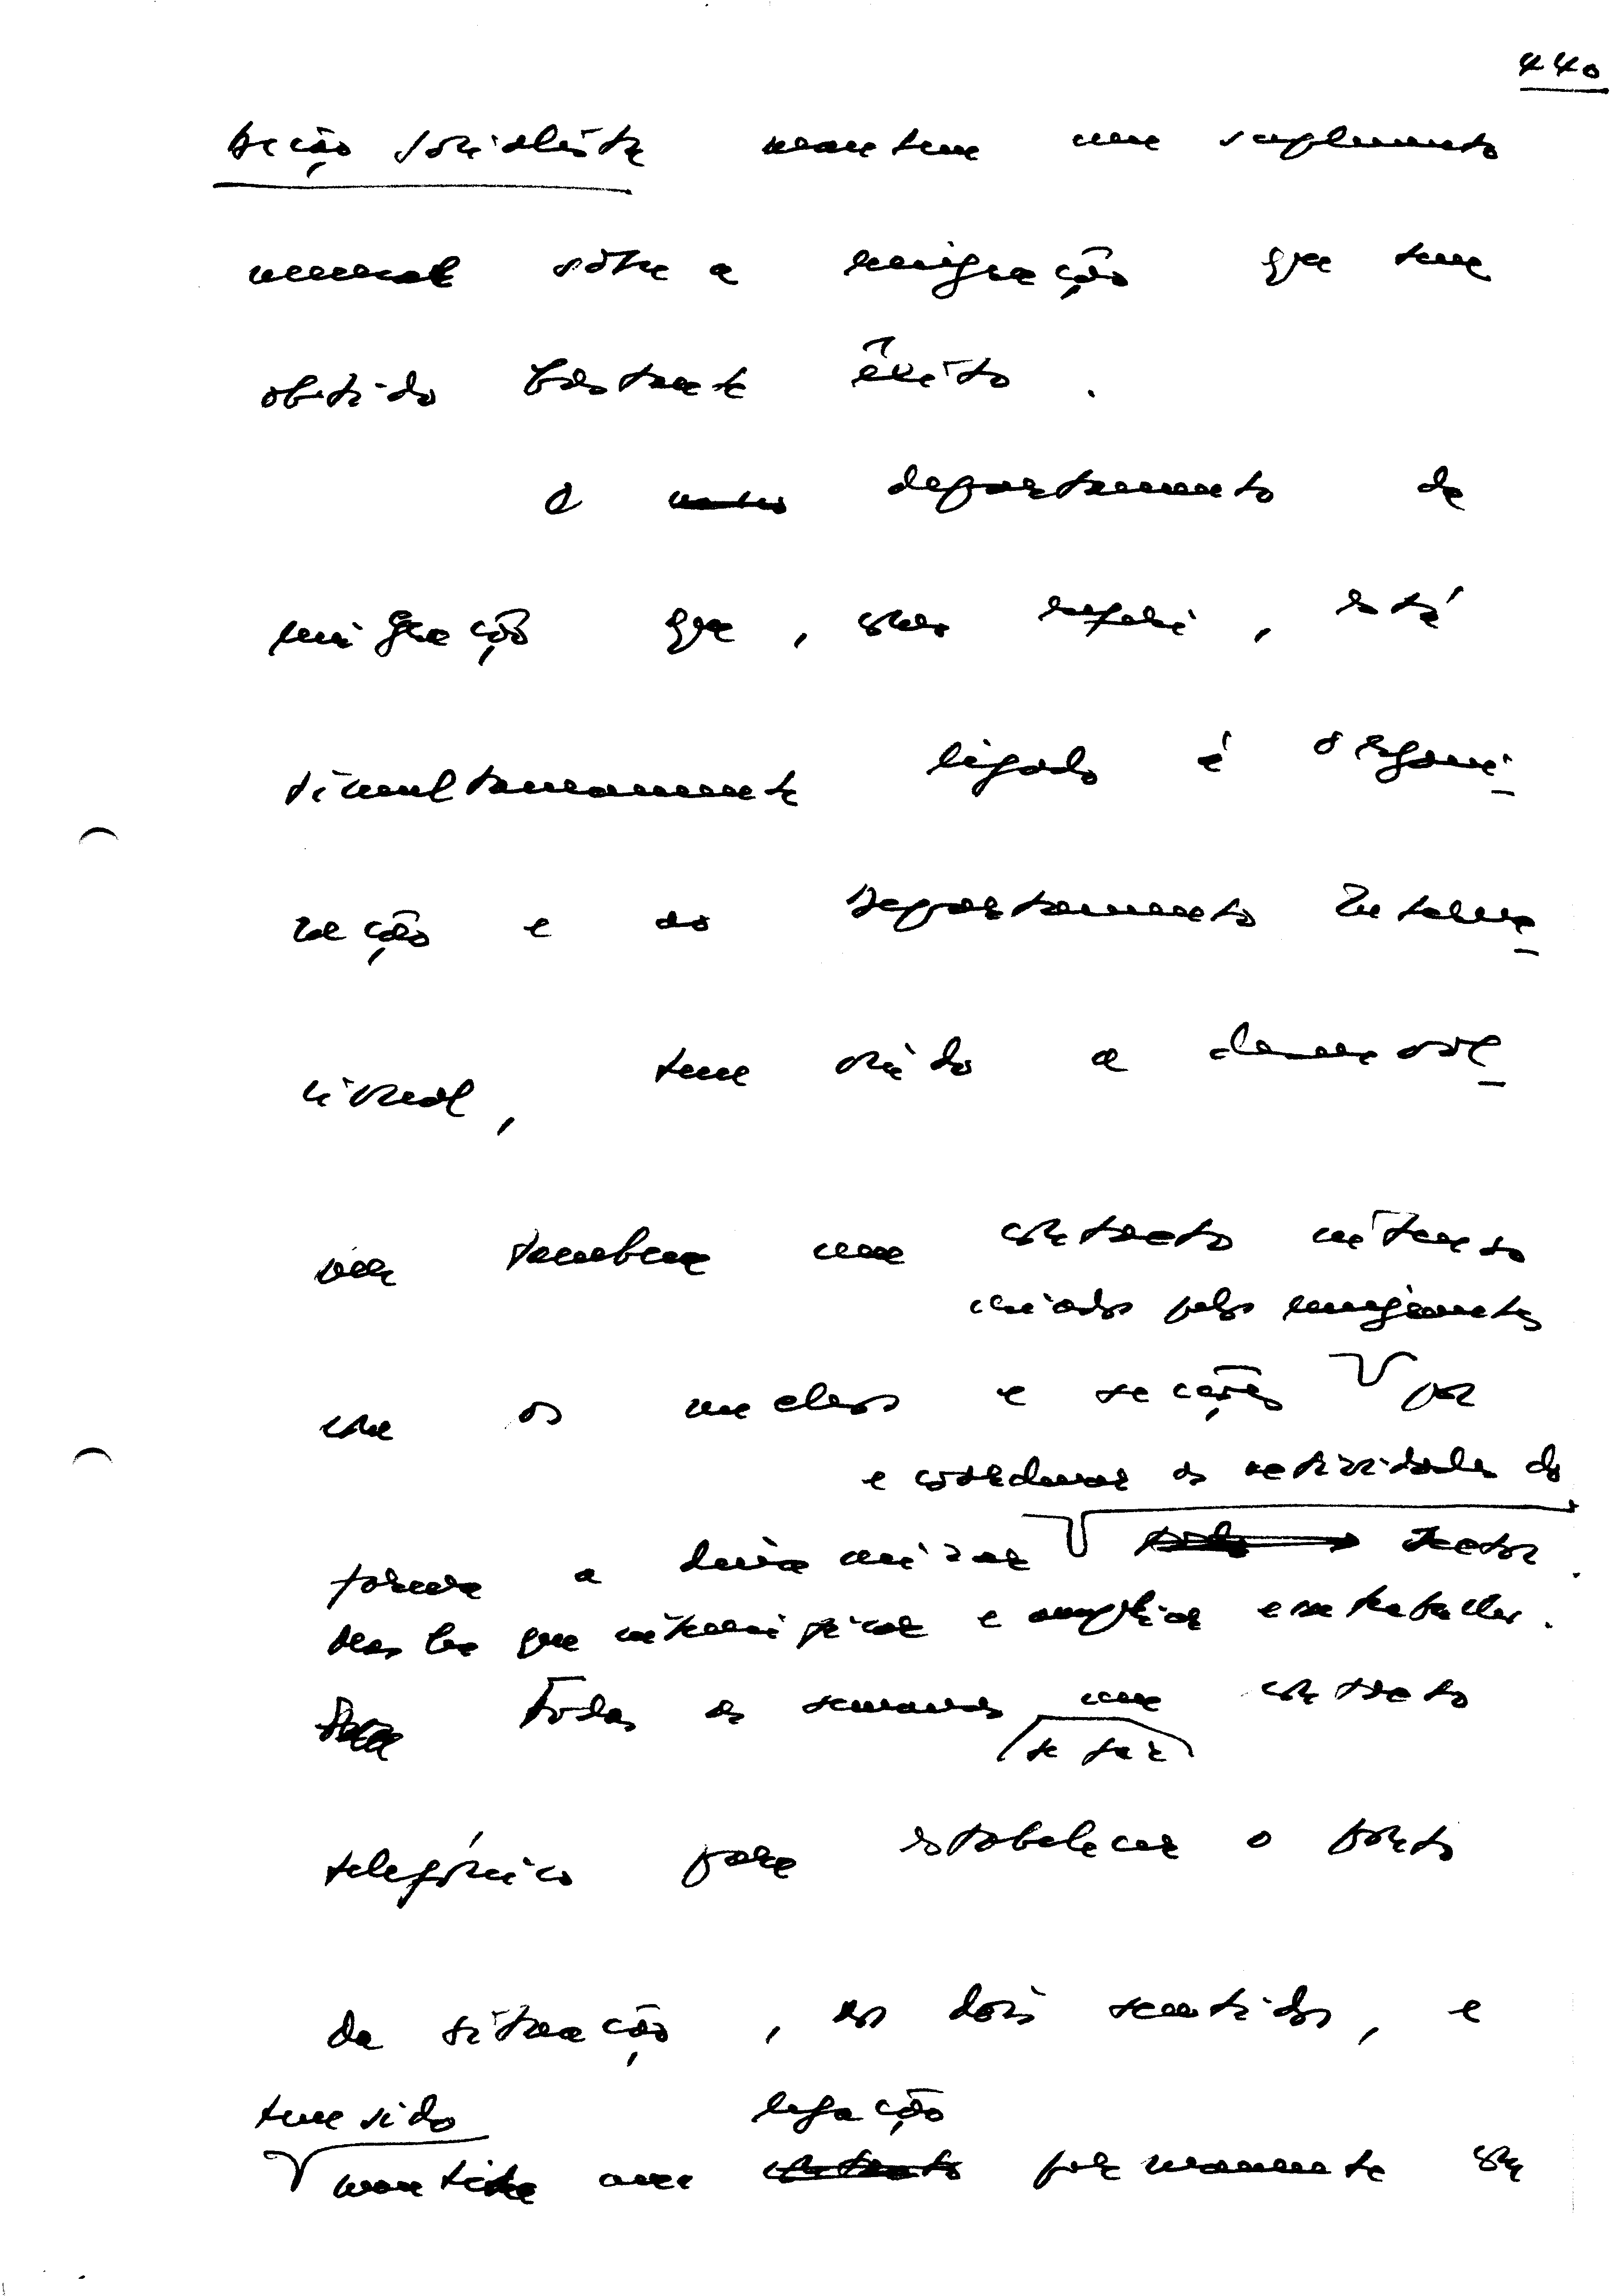 440
Acção Socialista mantem um suplemento
mensal sobre a emigração que tem
obtido bastante êxito.
O departamento de
emigração que, , está
simultaneamente ligado à organi-
zação e ao Departamento Interna-
cional, tem vindo a desenvol-
ver tambem um contacto intenso
criados pelos emigrantes
com os nucleos e secções por
e coordenar as actividades do
forma a dinamizar sector.
que intensificar e ampliar esse trabalho.
Todas as semanas um contacto
se faz
telefónico para estabelecer o ponto
da situação, nos dois sentidos, e
tem sido ligação
mantida uma permanente